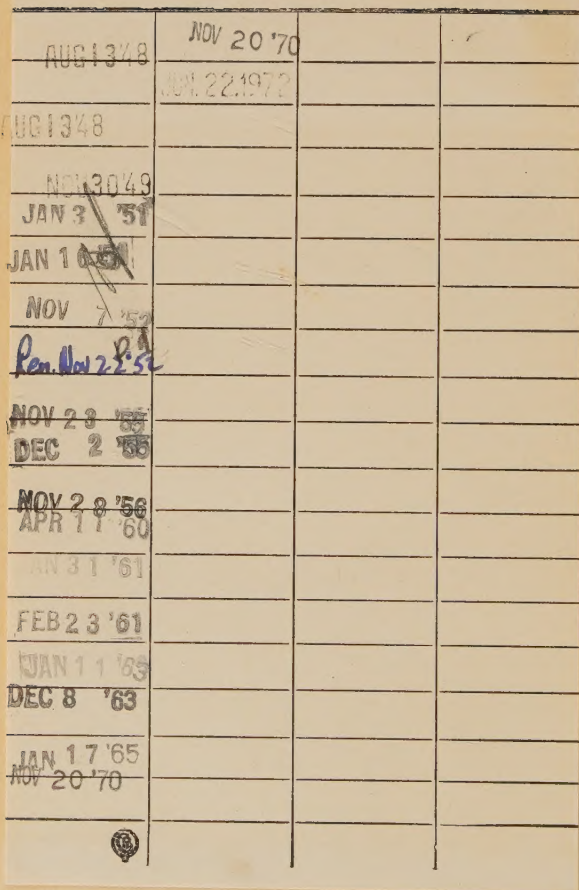 AUG 13'48
AUG 13'48
NOV 30'49
JAN 3 '51
JAN 16
NOV 7 '52
Ren. Nov 22 '52
NOV 23 '55
DEC 2 '55
NOV 28 '56
APR 11 '60
JAN 31 '61
FEB 23 '61
JAN 11 '63
DEC 8 '63
JAN 17 '65
NOV 20 '70
NOV 20 '70
JUN. 22.1972